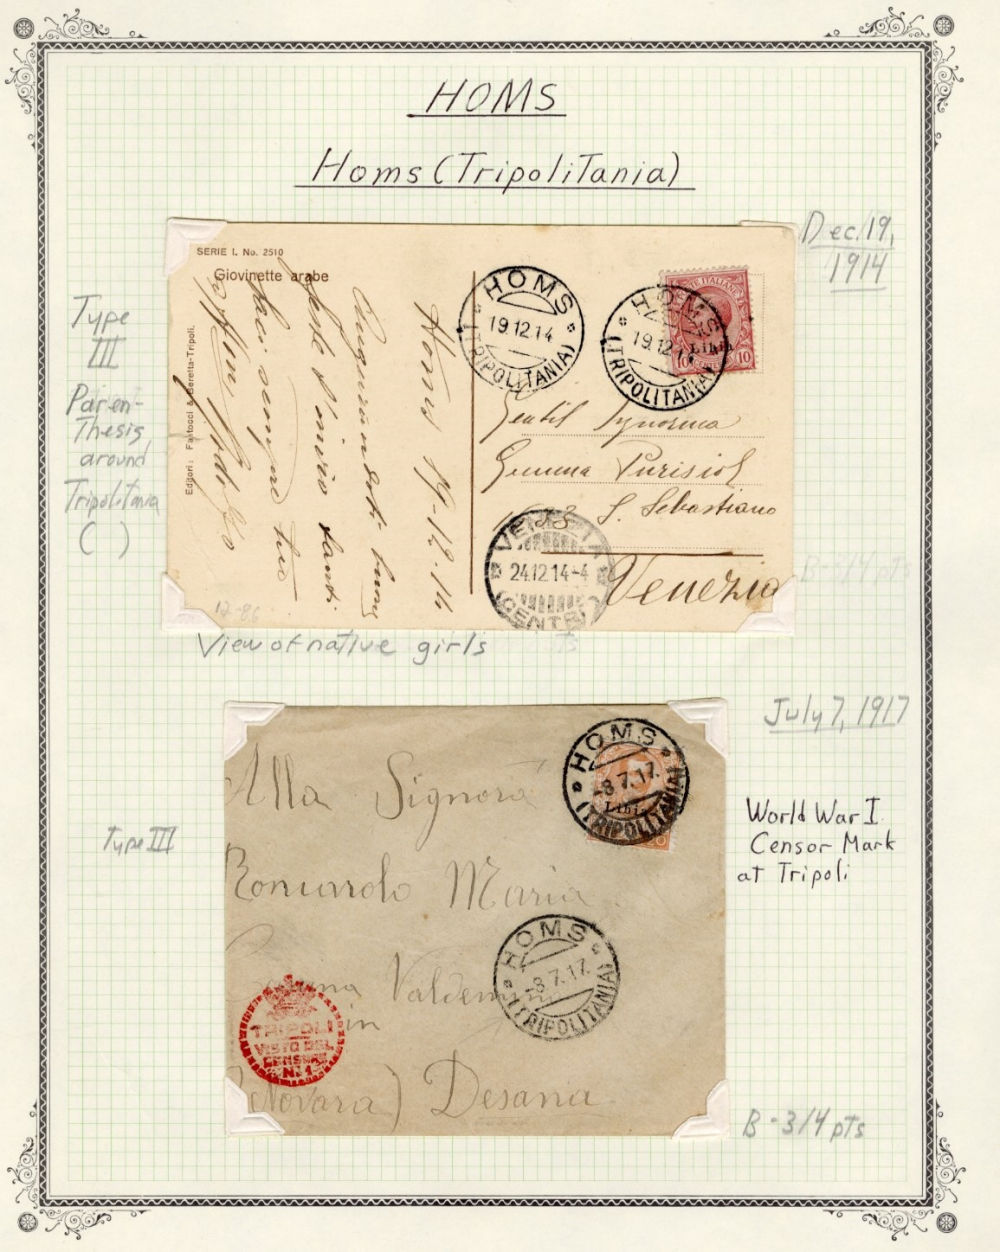 HOMS
Homs (Tripolitania)
Dec. 19,
1914
Type
III
Paren-
Thesis
around
Tripolitania
( )
SERIE I. No. 2510
Giovinette arabe
Editori: Fantocci & Beretta-Tripoli.
Homs 19-12-14
HOMS
19.12.14
(TRIPOLITANIA)
HOMS
19.12.14
(TRIPOLITANIA)
Libia
10 10
Gentil Signorina
Gemma
S. Sebastiano
Venezia
VENEZIA
24.12.14-4
(CENTRO
12-86
B-3/4 pts
View of native girls
July 7, 1917
Type III
World War I
Censor Mark
at Tripoli
HOMS
-8.7.17.
(TRIPOLITANIA)
Libia
20
Alla Signora
Maria
HOMS
-8.7.17.
(TRIPOLITANIA)
in
(Novara) Desana
TRIPOLI
VISTO DEL
CENSORE
N. 1
B - 3/4 pts